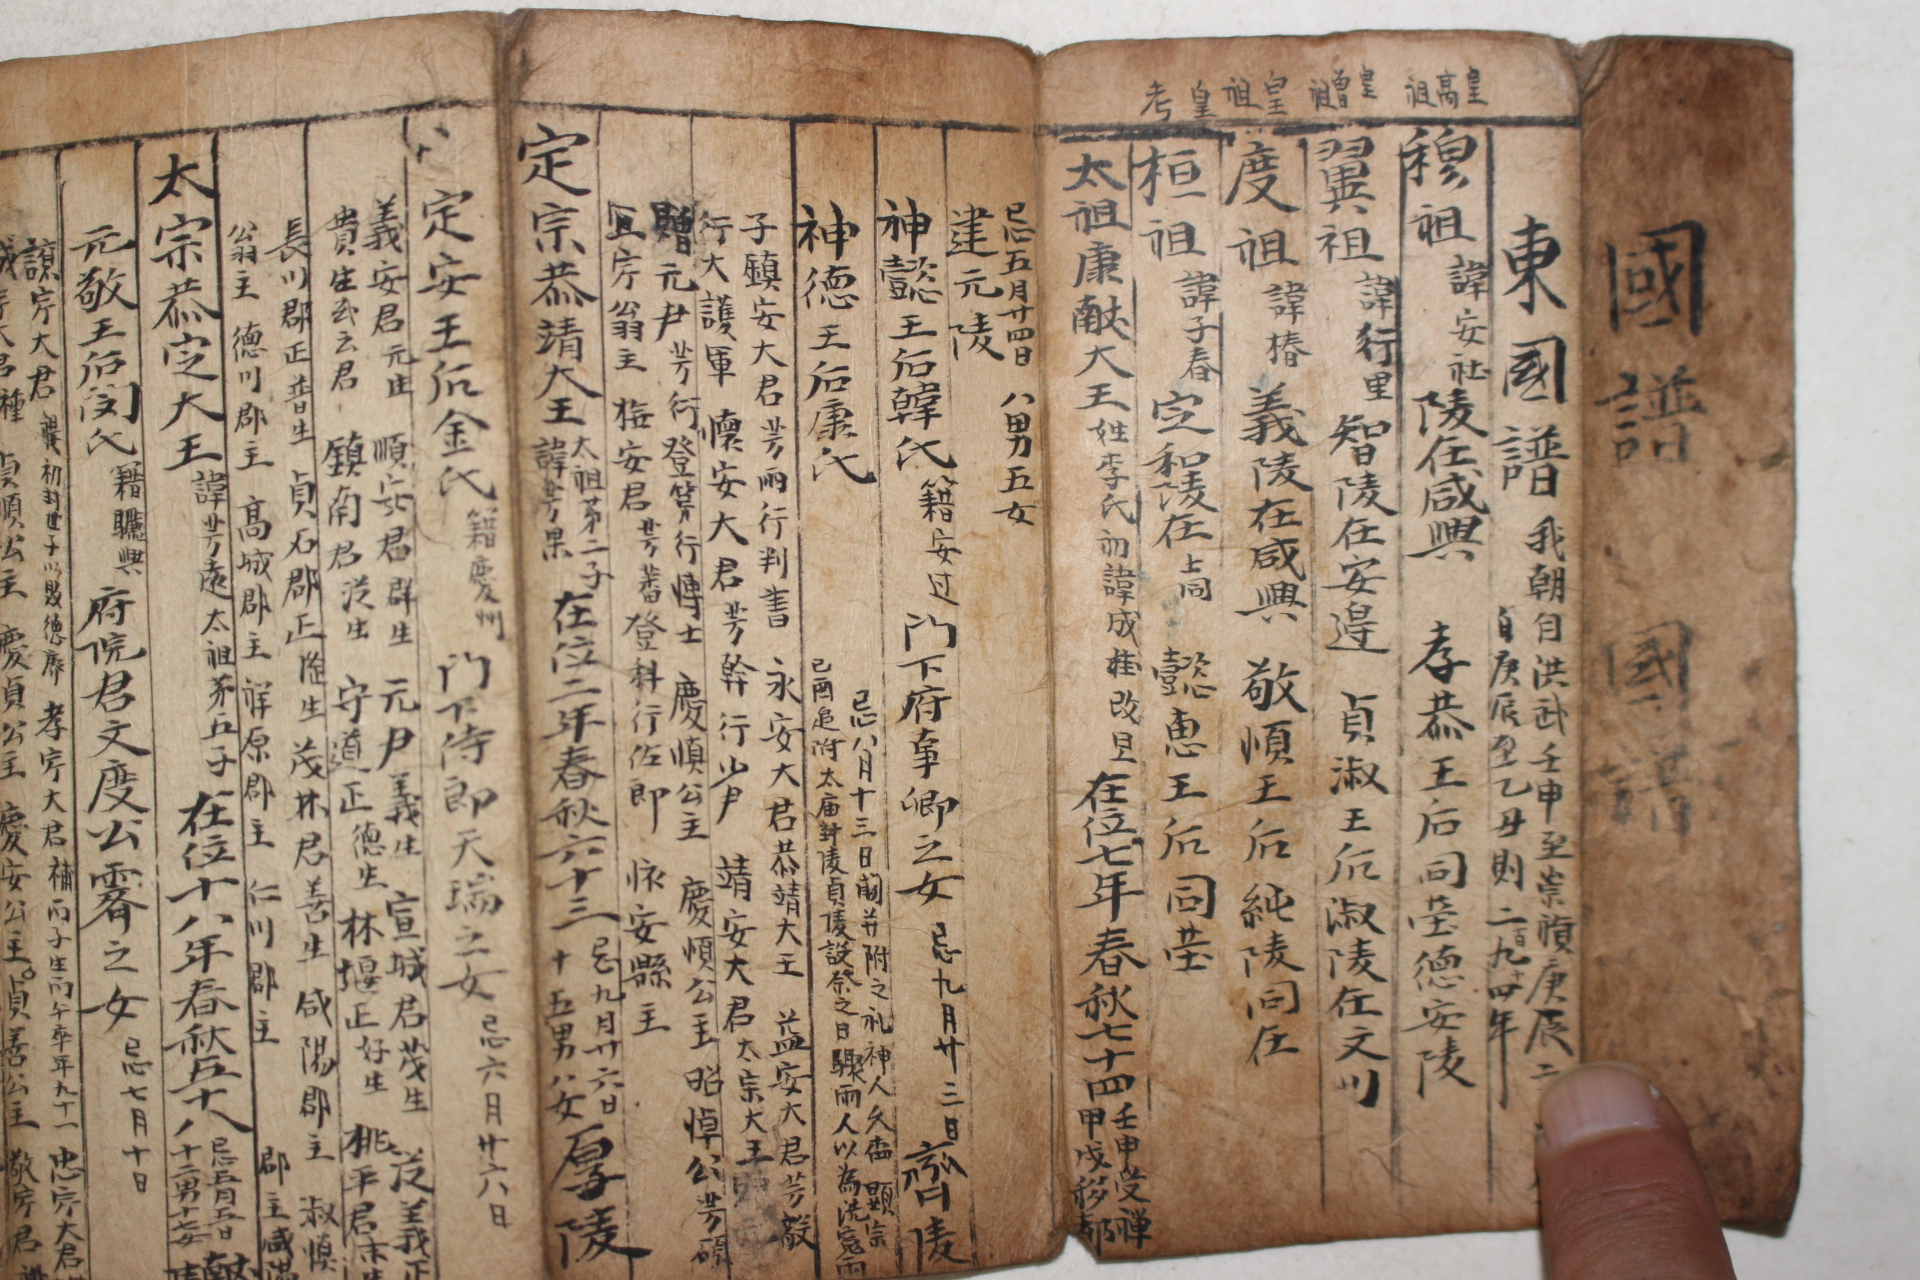 國譜
國譜
皇高祖
皇曾祖
皇祖
皇考
東國譜 我朝自洪武壬申至崇禎庚辰二
自庚辰至乙丑則二百九十四年
穆祖 諱安社 陵在咸興 孝恭王后同塋德安陵
翼祖 諱行里 智陵在安邊 貞淑王后淑陵在文川
度祖 諱椿 義陵在咸興 敬順王后純陵同在
桓祖 諱子春 定和陵在上同 懿惠王后同塋
太祖康獻大王 姓李氏初諱成桂改旦 在位七年春秋七十四 壬申受禪 甲戌移都
忌五月廿四日 八男五女
建元陵
神懿王后韓氏 籍安过 門下府事卿之女 忌九月廿三日 齊陵
神德王后康氏
忌八月十三日 附之礼神人久 顯宗
己酉追附太庙封陵貞陵設祭之日驟雨人以為洗寃雨
子鎮安大君芳雨行判書 永安大君恭靖大王 益安大君芳毅
行大護軍 懷安大君芳幹行 靖安大君太宗大王
贈元尹芳衍登第行博士 慶愼公主 慶順公主 昭悼公芳碩
宜寧翁主 撫安君芳蕃登科行佐郎 怀安縣主
定宗恭靖大王 太祖第二子 諱芳果 在位二年春秋六十三 忌九月廿六日 十五男八女 厚陵
定安王后金氏 籍慶州 門下侍郎天瑞之女 忌六月廿六日
義安君元生 順安君群生 元尹義生 宣城君茂生 茂義正
貴生 君 鎮南君茂生 守道正德生 林堰正好生 桃平君末生
長川郡正普生 貞石郡正隆生 茂林君善生 咸陽郡主 淑愼
翁主 德川郡主 高城郡主 祥原郡主 仁川郡主 郡主咸
太宗恭定大王 諱芳遠太祖第五子 在位十八年春秋五十八 忌五月五日 十二男十七女 獻陵
元敬王后閔氏 籍驪興 府院君文度公霽之女 忌七月十日
讓寧大君 初封世子以敗德廢 孝宁大君補丙子生丙午卒年九十一 忠宁大君
大君種 貞順公主 慶貞公主 慶安公主 貞善公主 敬宁君